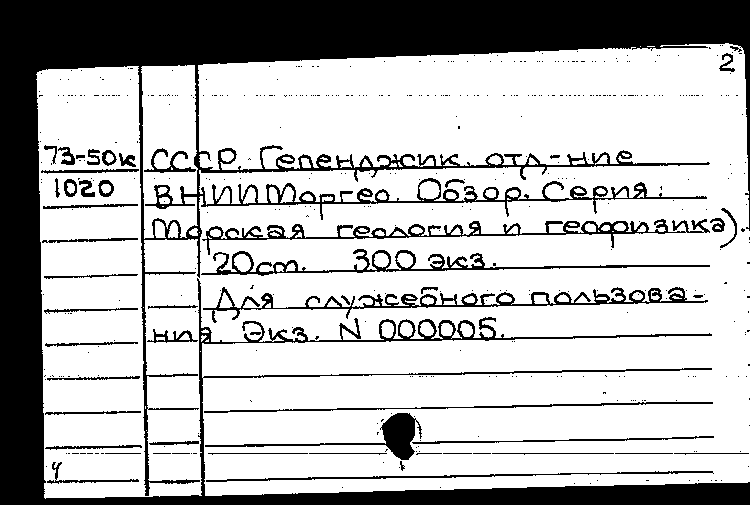 2
73-50к СССР. Геленджик. отд-ние
1020 ВНИИМоргео. Обзор. Серия:
Морская геология и геофизика).
20 cm. 300 экз.
Для служебного пользова-
ния. Экз. N 000005.